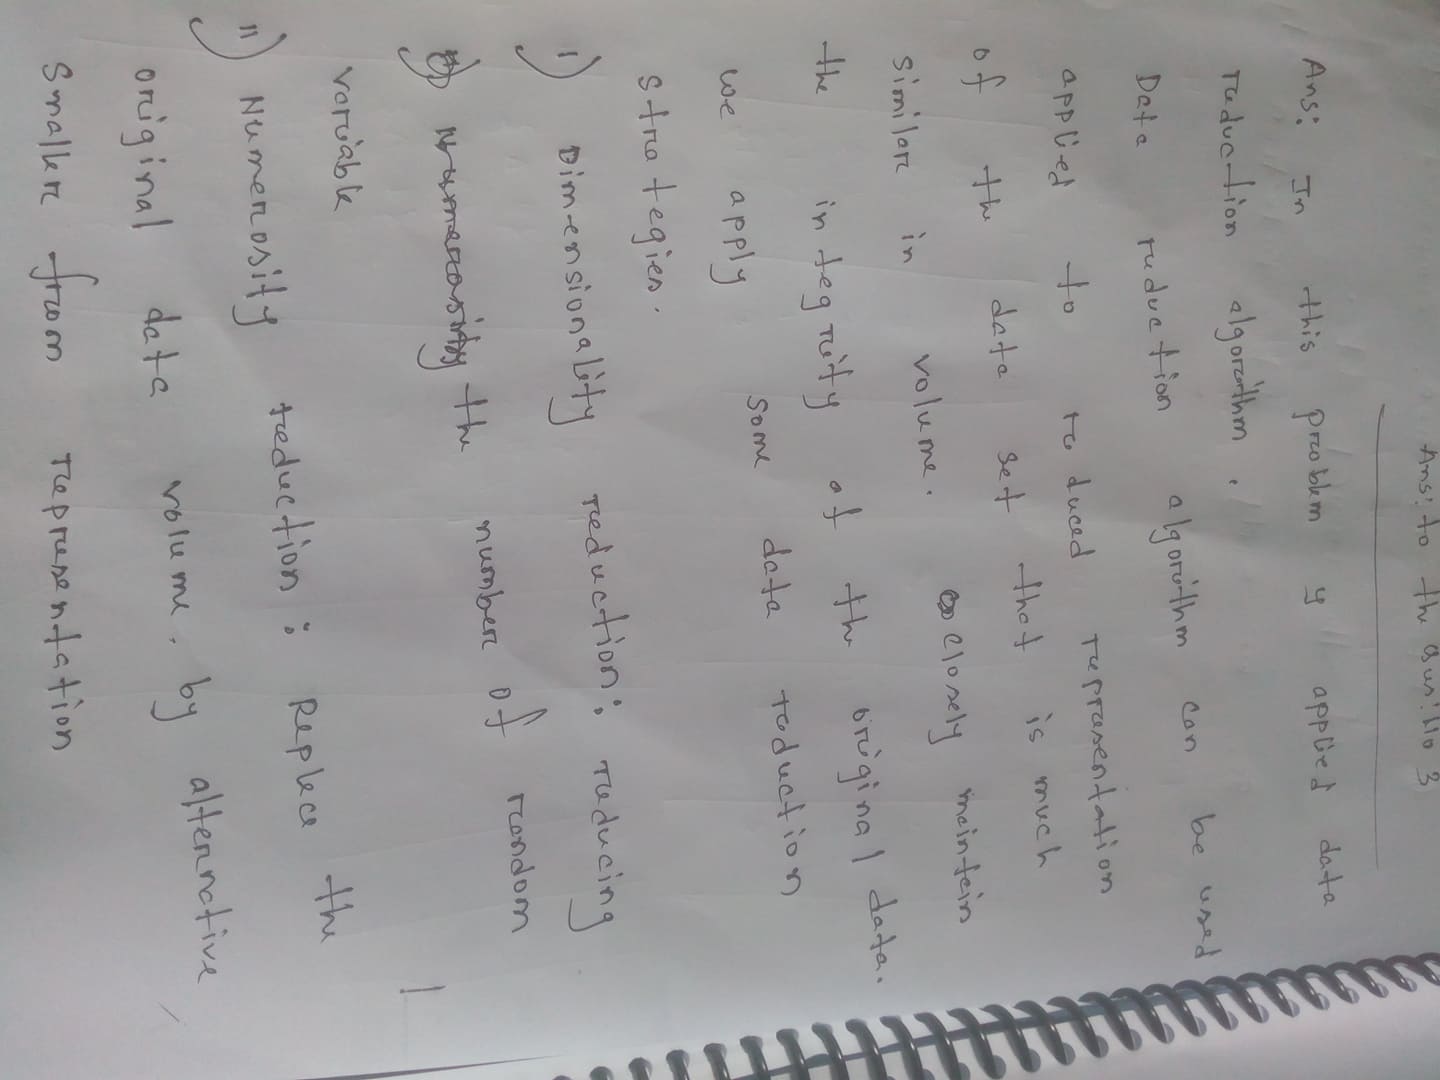 Ans: to the qus: No 3
Ans: In this problem y applied data
reduction algorithm.
Data reduction algorithm can be used
applied to reduced representation
of the data set that is much
similar in volume. closely maintain
the integrity of the original data.
we apply some data reduction
strategies.
i) Dimensionality reduction: reducing
the number of random
variable
ii) Numerosity reduction: Replace the
original data volume. by alternative
smaller from representation